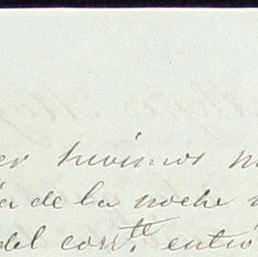 er tuvimos
ia de la noche
del corrte. entró